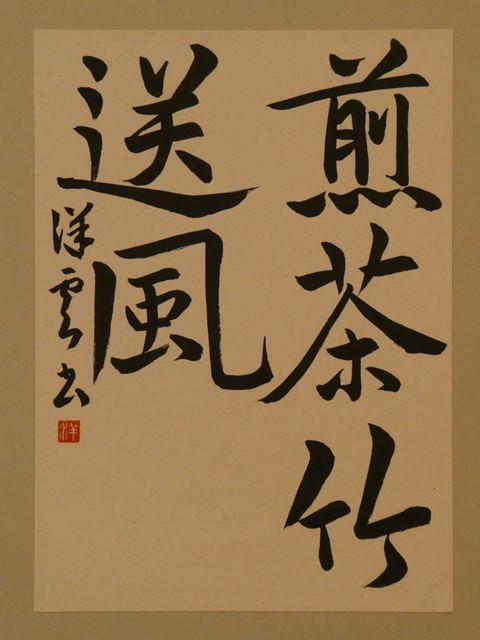 煎茶竹
送風
洋雲書
洋